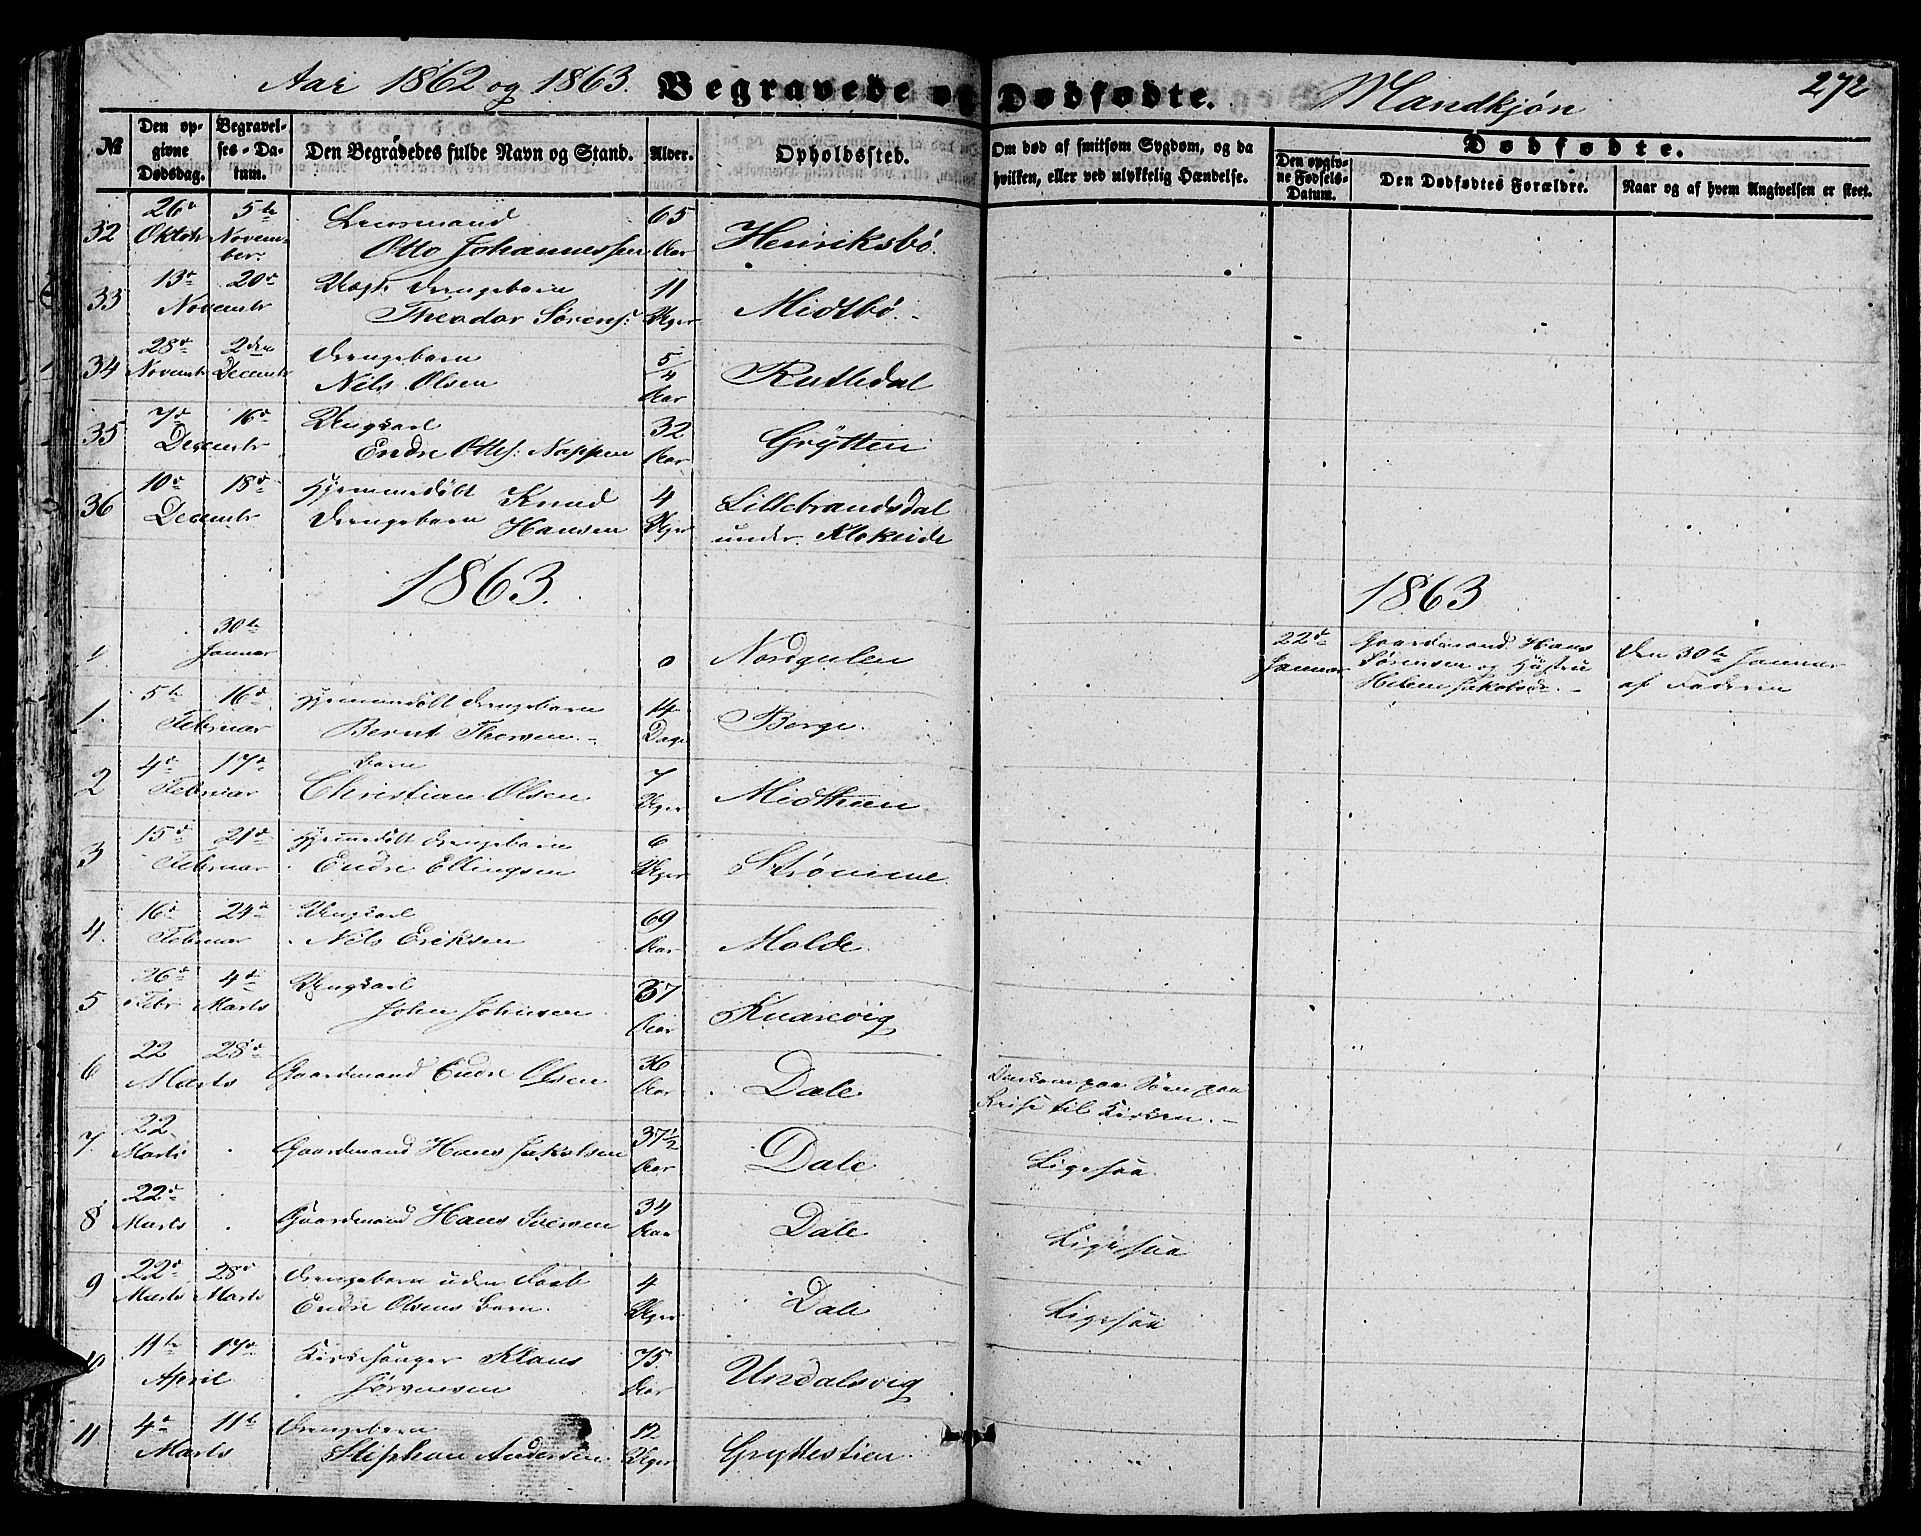 Aar 1862 og 1863. Begravede og Dødfødte. Mandkjøn 272
№ Den opgivne Dødsdag. Begravelses-Datum. Den Begravedes fulde Navn og Stand. Alder. Opholdssted. Om død af smitsom Sygdom, og da hvilken, eller ved ulykkelig Hændelse. Dødfødte. Den opgivne Fødsels-Datum. Den Dødfødtes Forældre. Naar og af hvem Angivelsen er skeet.
32 26d Oktobr 5te November. Otto Johannessen 65 Aar Henriksbø.
33 13d 20d Novembr Drengebarn Theodor Sørens: 11 Uger Midtbø.
34 28d Novembr 2den Decembr Drengebarn Nils Olsen 5/4 Aar Rutledal
35 7d 16d Decembr Ungkarl Endre Otts: Nappen 32 Aar Grytten
36 10d 18d Decembr Hjemmedøbt Drengebarn Knud Hansen 4 Uger Lillebrandsdal under Klokeide
1863. 1863
30te Januar 0 Nordgulen 22d Januar Gaardmand Hans Sørensen og Hustru Helene Jakobsd. Den 30te Januar af Faderen
1. 5te 16d Februar Hjemmedøbt Drengebarn Bernt Thorsen 14 Dage Berge.
2 4d 17d Februar Barn Christian Olsen 7 Uger Midthun
3 15d 21d Februar Hjemmedøbt Drengebarn Endre Ellingsen 6 Uger Strømme
4. 16d 24d Februar Ungkarl Nils Eriksen 69 Aar Molde.
5 26d Febr 4d Marts Ungkarl John Johnsen 67 Aar Knarvig
6 22 28d Marts Gaardmand Endre Olsen 36 Aar Dale Reise til Kirken.
7. 22 Marts Gaardmand Hans Jakobsen 37½ Aar Dale Ligesaa
8 22d Marts Gaardmand Hans Iversen 34 Aar Dale Ligesaa
9 22d Marts 28d Marts Drengebarn uden Daab Endre Olsens Barn. 4 Uger Dale Ligesaa
10 11te 17d April Kirkesanger Klaus Jørgensen 75 Aar Undalsvig
11 4d 11te Marts Drengebarn Stephan Andersen 12 Uger Gryttestien.